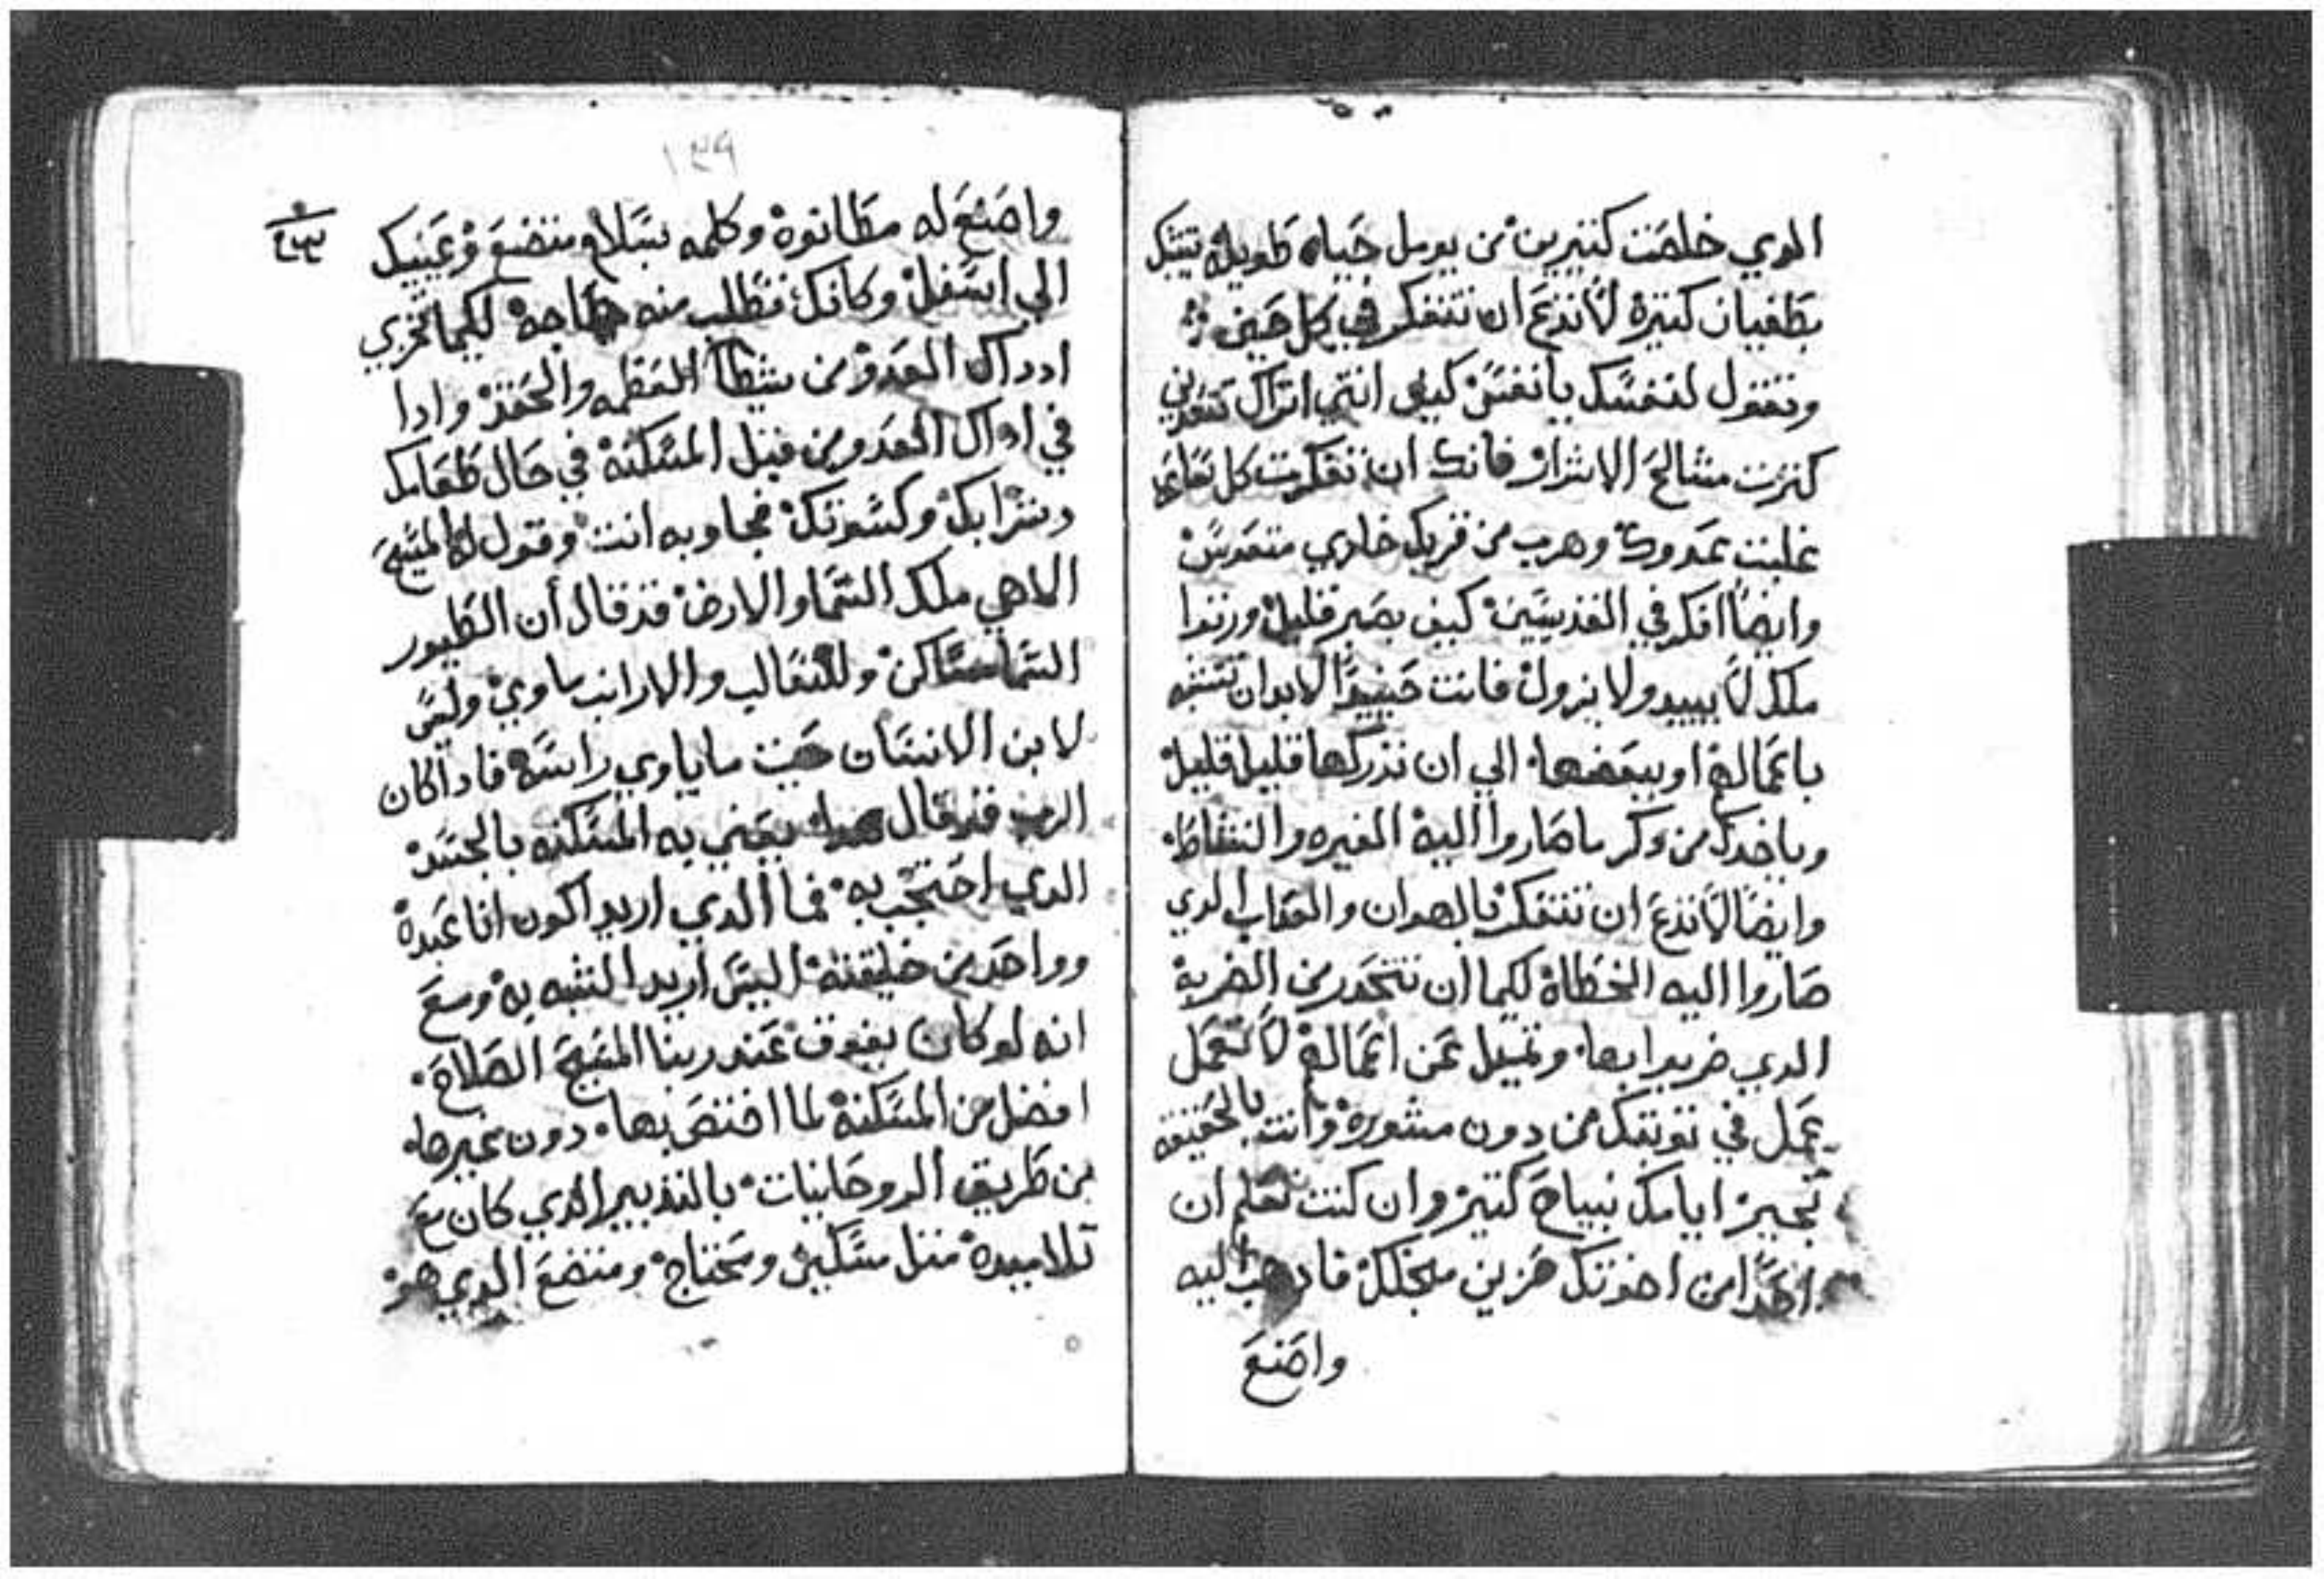 الدي خلصت كتيرين من يومل حياه طويله تتبك
بطغيان كتيرة لا تدع ان تتفكر في كل حين
وتقول لنفسك يا نفس كيف انتي اتراك تقدري
كترت مشالح الاشرار فانك ان تفكرت كل
غلبت عدوك وهرب من قربك خازي
وايضا افكر في القديسين كيف بصبر قليل ورتوا
ملك لا يبيد ولا يزول فانت حينيدا لا بد ان تتشبه
باعمالهم او ببعضها الي ان تدركها قليلا قليل
وياخدك من دكر ما صاروا اليه الغيره والنشاط
وايضا لا تدع ان تتفكر بالهوان والعقاب الدي
صاروا اليه الخطاة لكيما ان تتحدر من الضربة
الدي ضربوا بها وتميل عن اعمالهم لا تعمل
عمل في توبتك من دون مشورة وانت بالحقيقه
تجيز ايامك بنياح كتير وان كنت تعلم ان
احدا من اخوتك حزين منجلك فادهب اليه
واصنع
١٣٩
واصنع له مطانوة وكلمه بسلام متضع وعينيك
الي اسفل وكانك تطلب منه حاجة لكيما تخزي
ادداك العدو من نشطا العظمه والحقد وادا
في ادداك العدو من قبل المسكنة في حال طعامك
وشرابك وكسوتك فجاوبه انت وقول له المسيح
الاهي ملك السما والارض قد قال أن الطيور
السما مساكن وللتعالب والارانب ماوي وليس
لابن الانسان حيت ما ياوي راسه فاداكان
الرب قد قال هدا يعني به المسكنه بالجسد
الدي احتجب به فما الدي اريد اكون انا عبدة
وواحد من خليقته اليس اريد التشبه به ومع
انه لو كان يفوق عند ربنا المسيح الصلاح
افضل من المسكنة لما اختص بها دون غيرها
من طريق الروحانيات بالتدبير الدي كان مع
تلاميدة متل مسكين ومحتاج ومتضع الدي هو